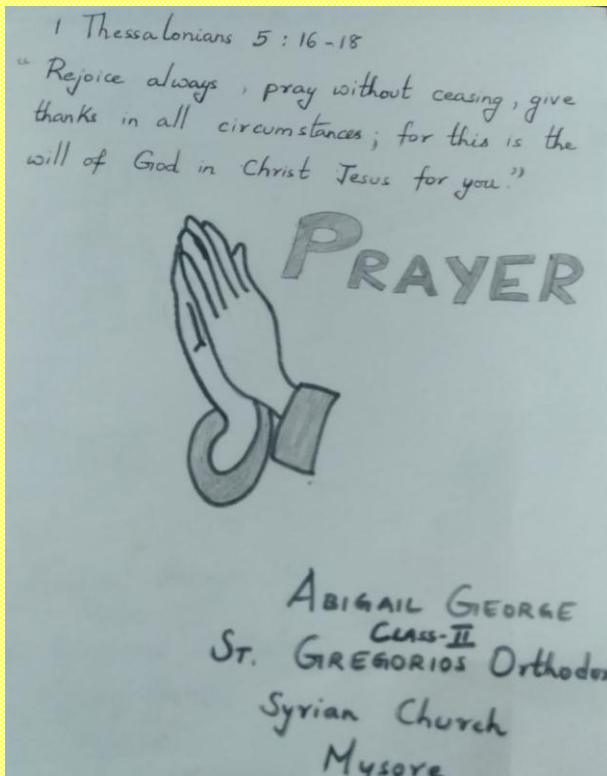 1 Thessalonians 5 : 16-18
"Rejoice always, pray without ceasing, give
thanks in all circumstances; for this is the
will of God in Christ Jesus for you."
PRAYER
ABIGAIL GEORGE
CLASS-II
ST. GREGORIOS Orthodox
Syrian Church
Mysore